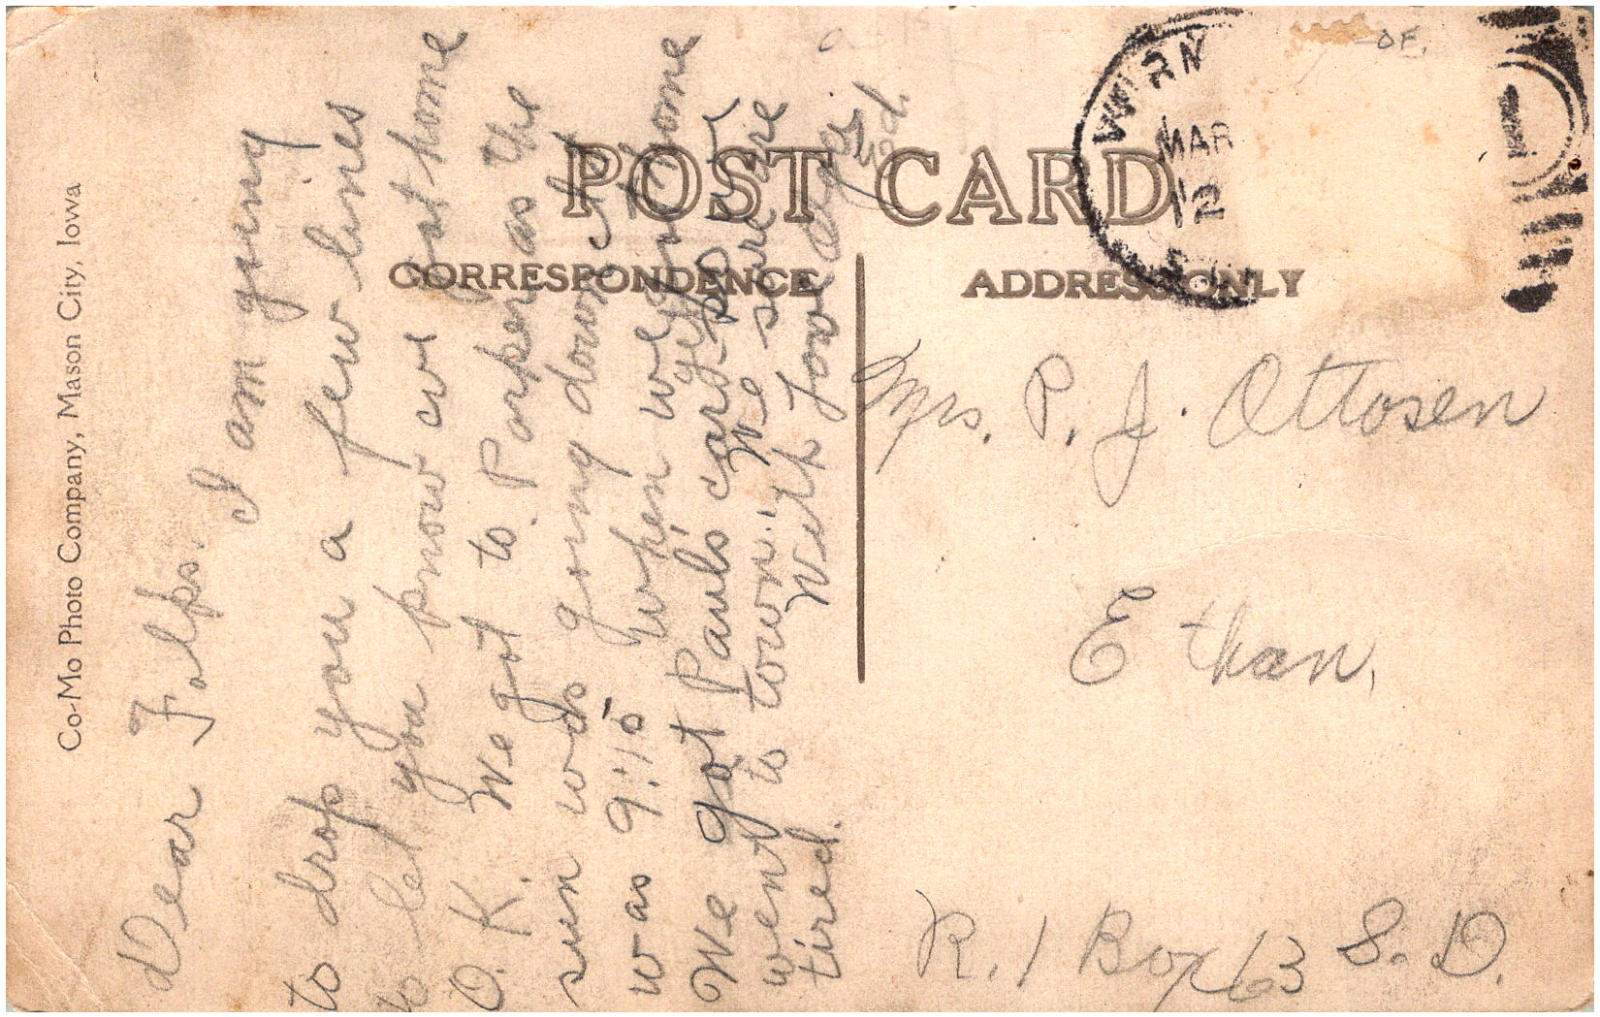 Co-Mo Photo Company, Mason City, Iowa
POST CARD
CORRESPONDENCE
ADDRESS ONLY
MAR
12
Dear Folks.
I am going
to drop you a few lines
to let you know we got home
O.K. We got to Parker as the
sun was going down. It
was 9:15 when we got home
We got Paul's card
went to town. We sure are
tired.
With Love
Mrs. P. J. Ottosen
Ethan,
R. 1 Box 63 S. D.